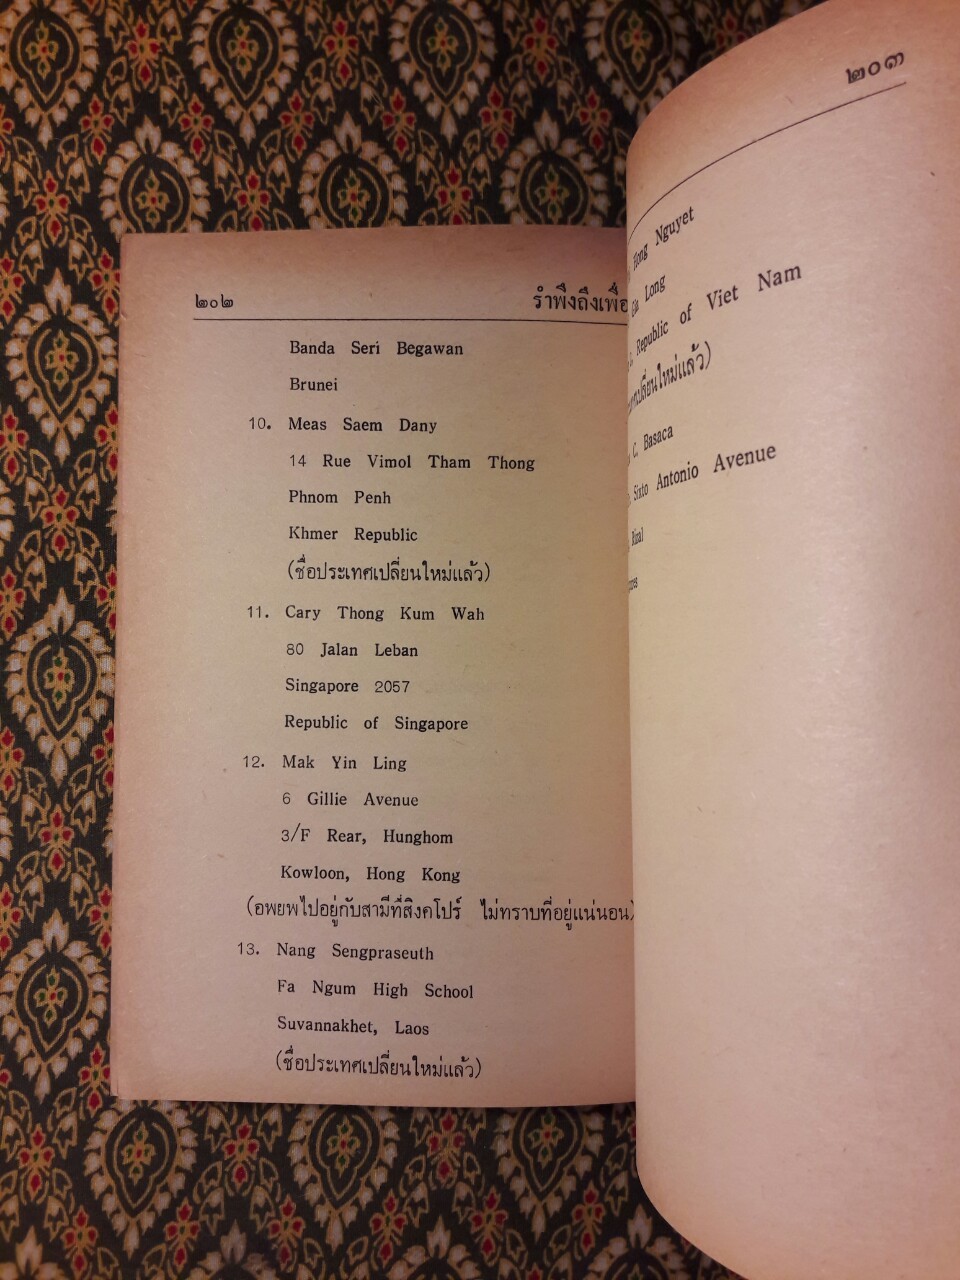 ๒๐๒
รำพึงถึงเพื่อ
Banda Seri Begawan
Brunei
10. Meas Saem Dany
14 Rue Vimol Tham Thong
Phnom Penh
Khmer Republic
(ชื่อประเทศเปลี่ยนใหม่แล้ว)
11. Cary Thong Kum Wah
80 Jalan Leban
Singapore 2057
Republic of Singapore
12. Mak Yin Ling
6 Gillie Avenue
3/F Rear, Hunghom
Kowloon, Hong Kong
(อพยพไปอยู่กับสามีที่สิงคโปร์ ไม่ทราบที่อยู่แน่นอน)
13. Nang Sengpraseuth
Fa Ngum High School
Suvannakhet, Laos
(ชื่อประเทศเปลี่ยนใหม่แล้ว)
๒๐๓
Hong Nguyet
Gia Long
Republic of Viet Nam
เปลี่ยนใหม่แล้ว)
C. Basaca
Sixto Antonio Avenue
Rizal